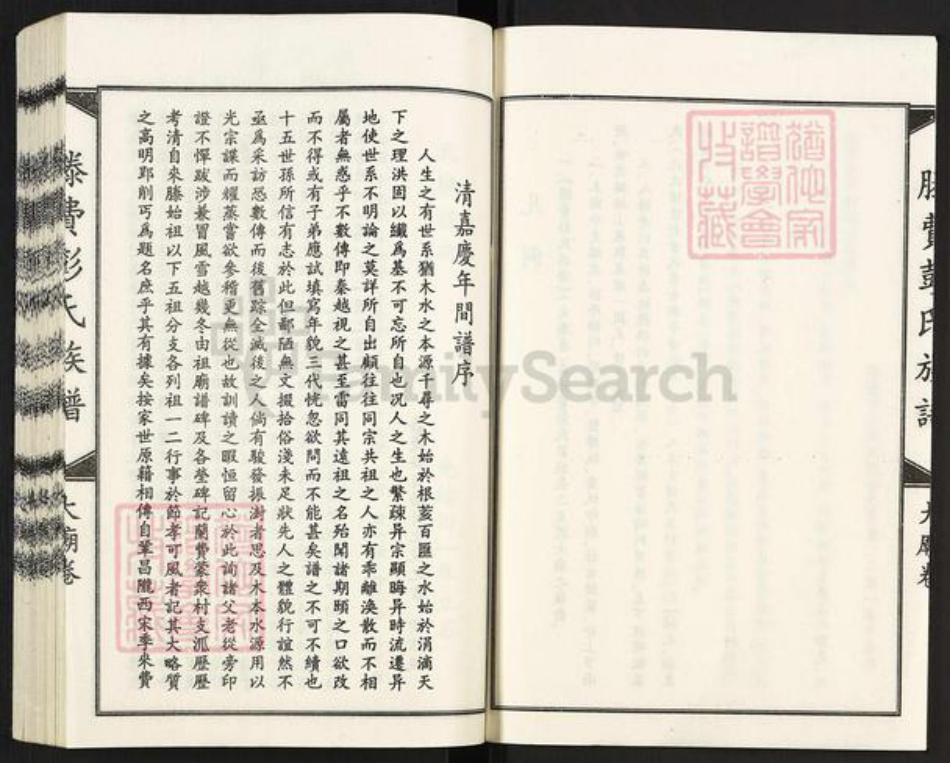 滕費彭氏族譜
大廟卷
猶他家
譜學會
收藏
清嘉慶年間譜序
人生之有世系猶木水之本源千尋之木始於根荄百匯之水始於涓滴天
下之理洪固以纖爲基不可忘所自也况人之生也繁疎异宗顯晦异時流遷异
地使世系不明論之莫詳所自出顧往往同宗共祖之人亦有乖離渙散而不相
屬者無惑乎不數傳即秦越視之甚至雷同其遠祖之名殆聞諸期頤之口欲改
而不得或有子弟應試填寫年貌三代恍忽欲問而不能甚矣譜之不可不續也
十五世孫所信有志於此但鄙陋無文掇拾俗淺未足狀先人之體貌行誼然不
亟爲采訪恐數傳而後舊踪全滅後之人倘有駿發振澍者思及木本水源用以
光宗諜而耀蒸嘗欲參稽更無從也故訓讀之暇恒留心於此詢諸父老從旁印
證不憚跋涉兼冒風雪越幾冬由祖廟譜碑及各塋碑記蘭費蒙衆村支派歷歷
考清自來滕始祖以下五祖分支各列祖一二行事於節孝可風者記其大略質
之高明郢削丐爲題名庶乎其有據矣按家世原籍相傳自鞏昌隴西宋季來費
滕費彭氏族譜
大廟卷
FamilySearch